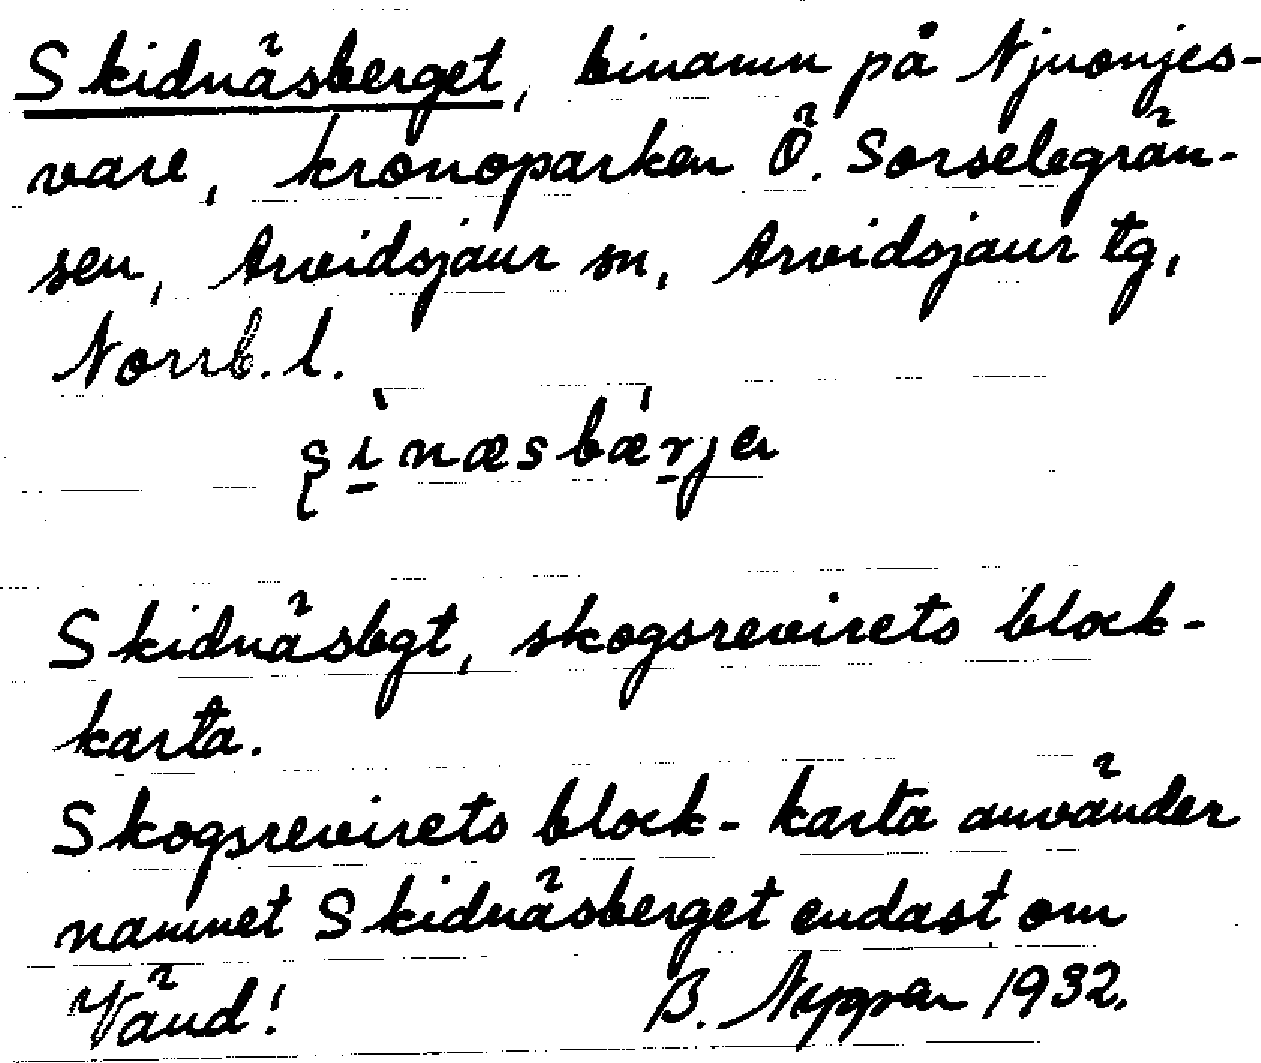 Skidnäsberget, binamn på Njuonjes-
vare, kronoparken Ö. Sorselegrän-
sen, Arvidsjaur sn, Arvidsjaur tg,
Norrb. l.
ʂì̱næsbæ̀ṟjər
Skidnäsbgt, skogsrevirets block-
karta.
Skogsrevirets block-karta använder
namnet Skidnäsberget endast om
Vänd! B. 1932.